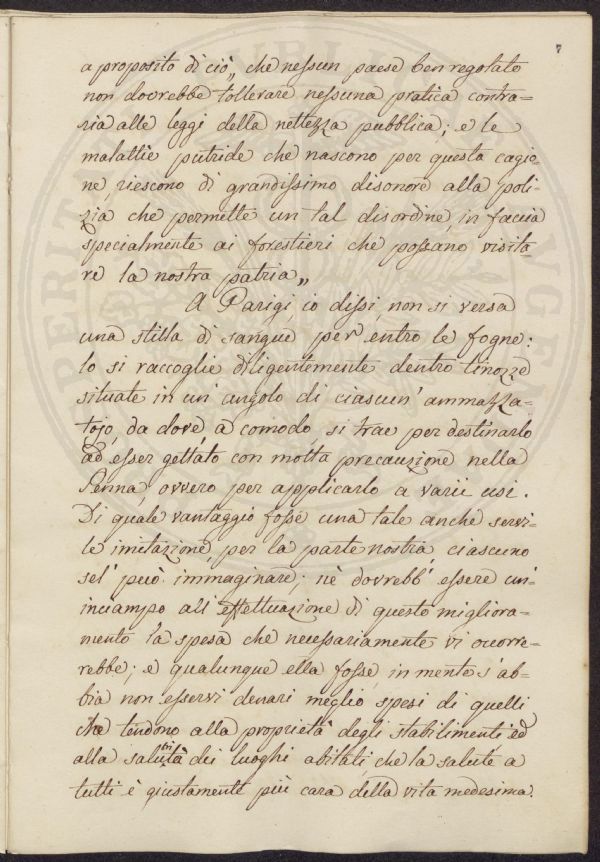 7
a proposito di ciò „ che nessun paese ben regolato
non dovrebbe tollerare nessuna pratica contra=
ria alle leggi della nettezza pubblica; e le
malattie putride che nascono per questa cagio=
ne, riescono di grandissimo disonore alla poli=
zia che permette un tal disordine, in faccia
specialmente ai forestieri che possano visita=
re la nostra patria „
A Parigi, io dissi, non si versa
una stilla di sangue per entro le fogne:
lo si raccoglie diligentemente dentro tinozze
situate in un' angolo di ciascun' ammazza=
tojo, da dove, a comodo, si trae per destinarlo
ad esser gettato con molta precauzione nella
Senna, ovvero per applicarlo a varii usi.
Di quale vantaggio fosse una tale anche servi=
le imitazione, per la parte nostra, ciascuno
sel' può immaginare; nè dovrebb' essere un'
inciampo all' effettuazione di questo migliora=
mento la spesa che necessariamente vi occorre=
rebbe; e qualunque ella fosse, in mente s'ab=
bia non esservi denari meglio spesi di quelli
che tendono alla proprietà degli stabilimenti ed
alla salubrità dei luoghi abitati, che la salute a
tutti è giustamente più cara della vita medesima.